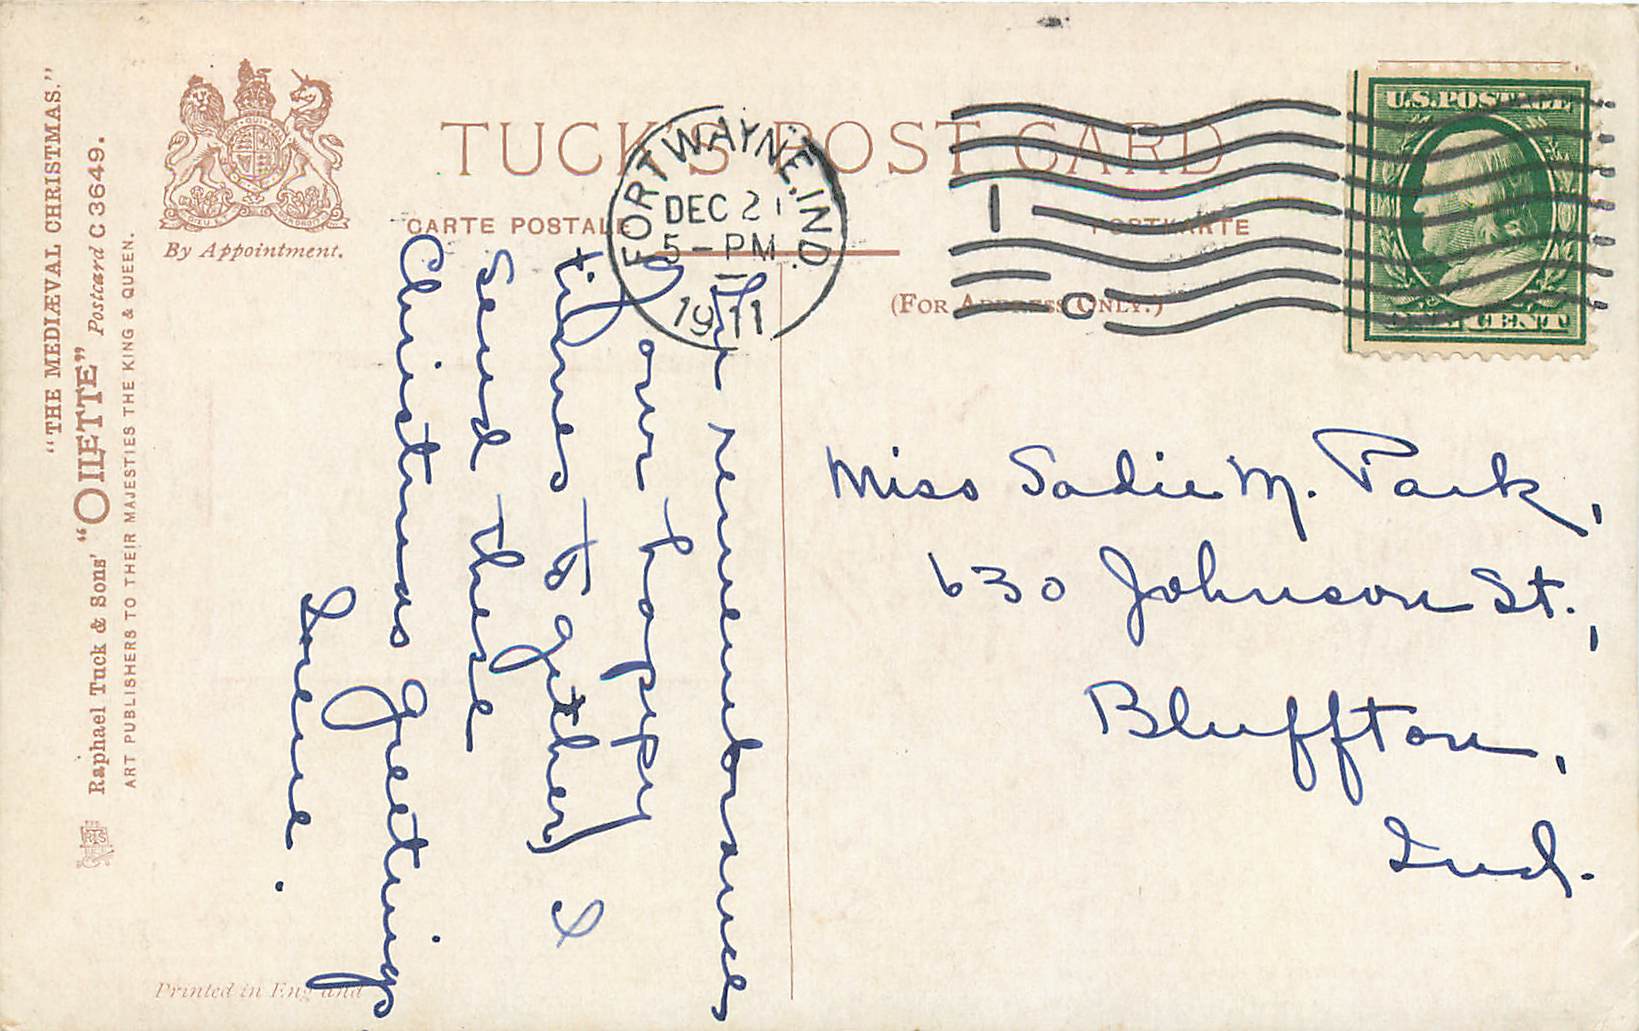 "THE MEDIÆVAL CHRISTMAS."
Raphael Tuck & Sons' "OILETTE" Postcard C 3649.
ART PUBLISHERS TO THEIR MAJESTIES THE KING & QUEEN.
RTS
By Appointment.
TUCK'S POST CARD
CARTE POSTALE
POSTKARTE
(FOR ADDRESS ONLY.)
FORT WAYNE, IND.
DEC 21
5-PM
1911
1
C
U.S. POSTAGE
ONE CENT
In remembrance
of our happy
times together, I
send these
Christmas Greetings
Irene.
Miss Sadie M. Park,
630 Johnson St.,
Bluffton,
Ind.
Printed in England